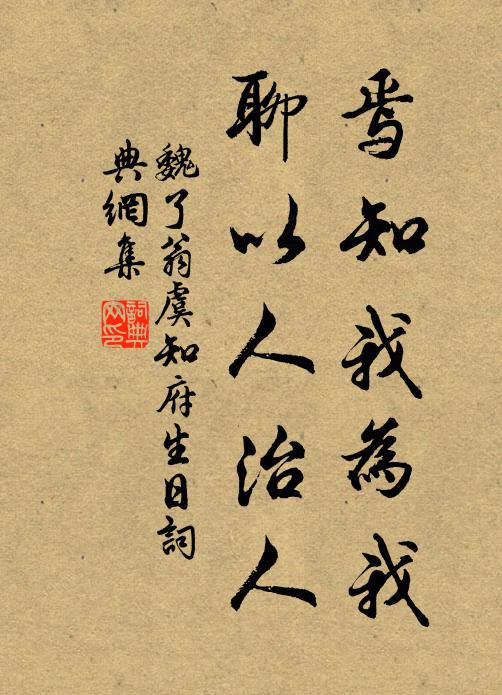 焉知我為我
聊以人治人
魏了翁虞知府生日詞
典網集
詞典
网印